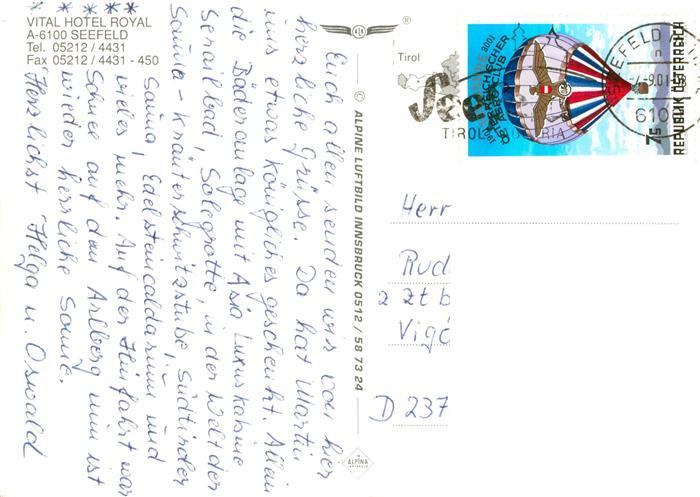 VITAL HOTEL ROYAL
A-6100 SEEFELD
Tel. 05212 / 4431
Fax 05212 / 4431 - 450
****
Euch allen senden wir von hier
herzliche Grüsse. Da hat Martin
uns etwas königliches geschenkt. Allein
die Bäderanlage mit Asia Luxuskabine
Serailbad, Solegrotte, in der Welt der
Sauna - Kräuterschwitzstube, Südtiroler
Sauna, Edelsteincaldarium und
vieles mehr. Auf der Hinfahrt war
Schnee auf dem Arlberg nun ist
wieder herrliche Sonne.
Herzlichst Helga u. Oswald
© ALPINE LUFTBILD INNSBRUCK 0512 / 58 73 24
ALPINA
®
Tirol
See
TIROL AUSTRIA
SEEFELD
9.01
610
2001
ÖSTERREICHISCHER
AEROCLUB
7S
REPUBLIK ÖSTERREICH
Herr
Rud
2 Zt b
Vigá
D 237